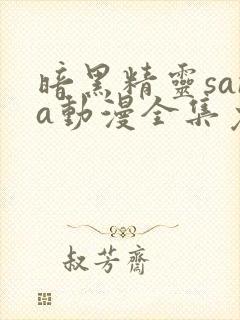 暗黑精靈sa
a動漫全集
叔芳齋